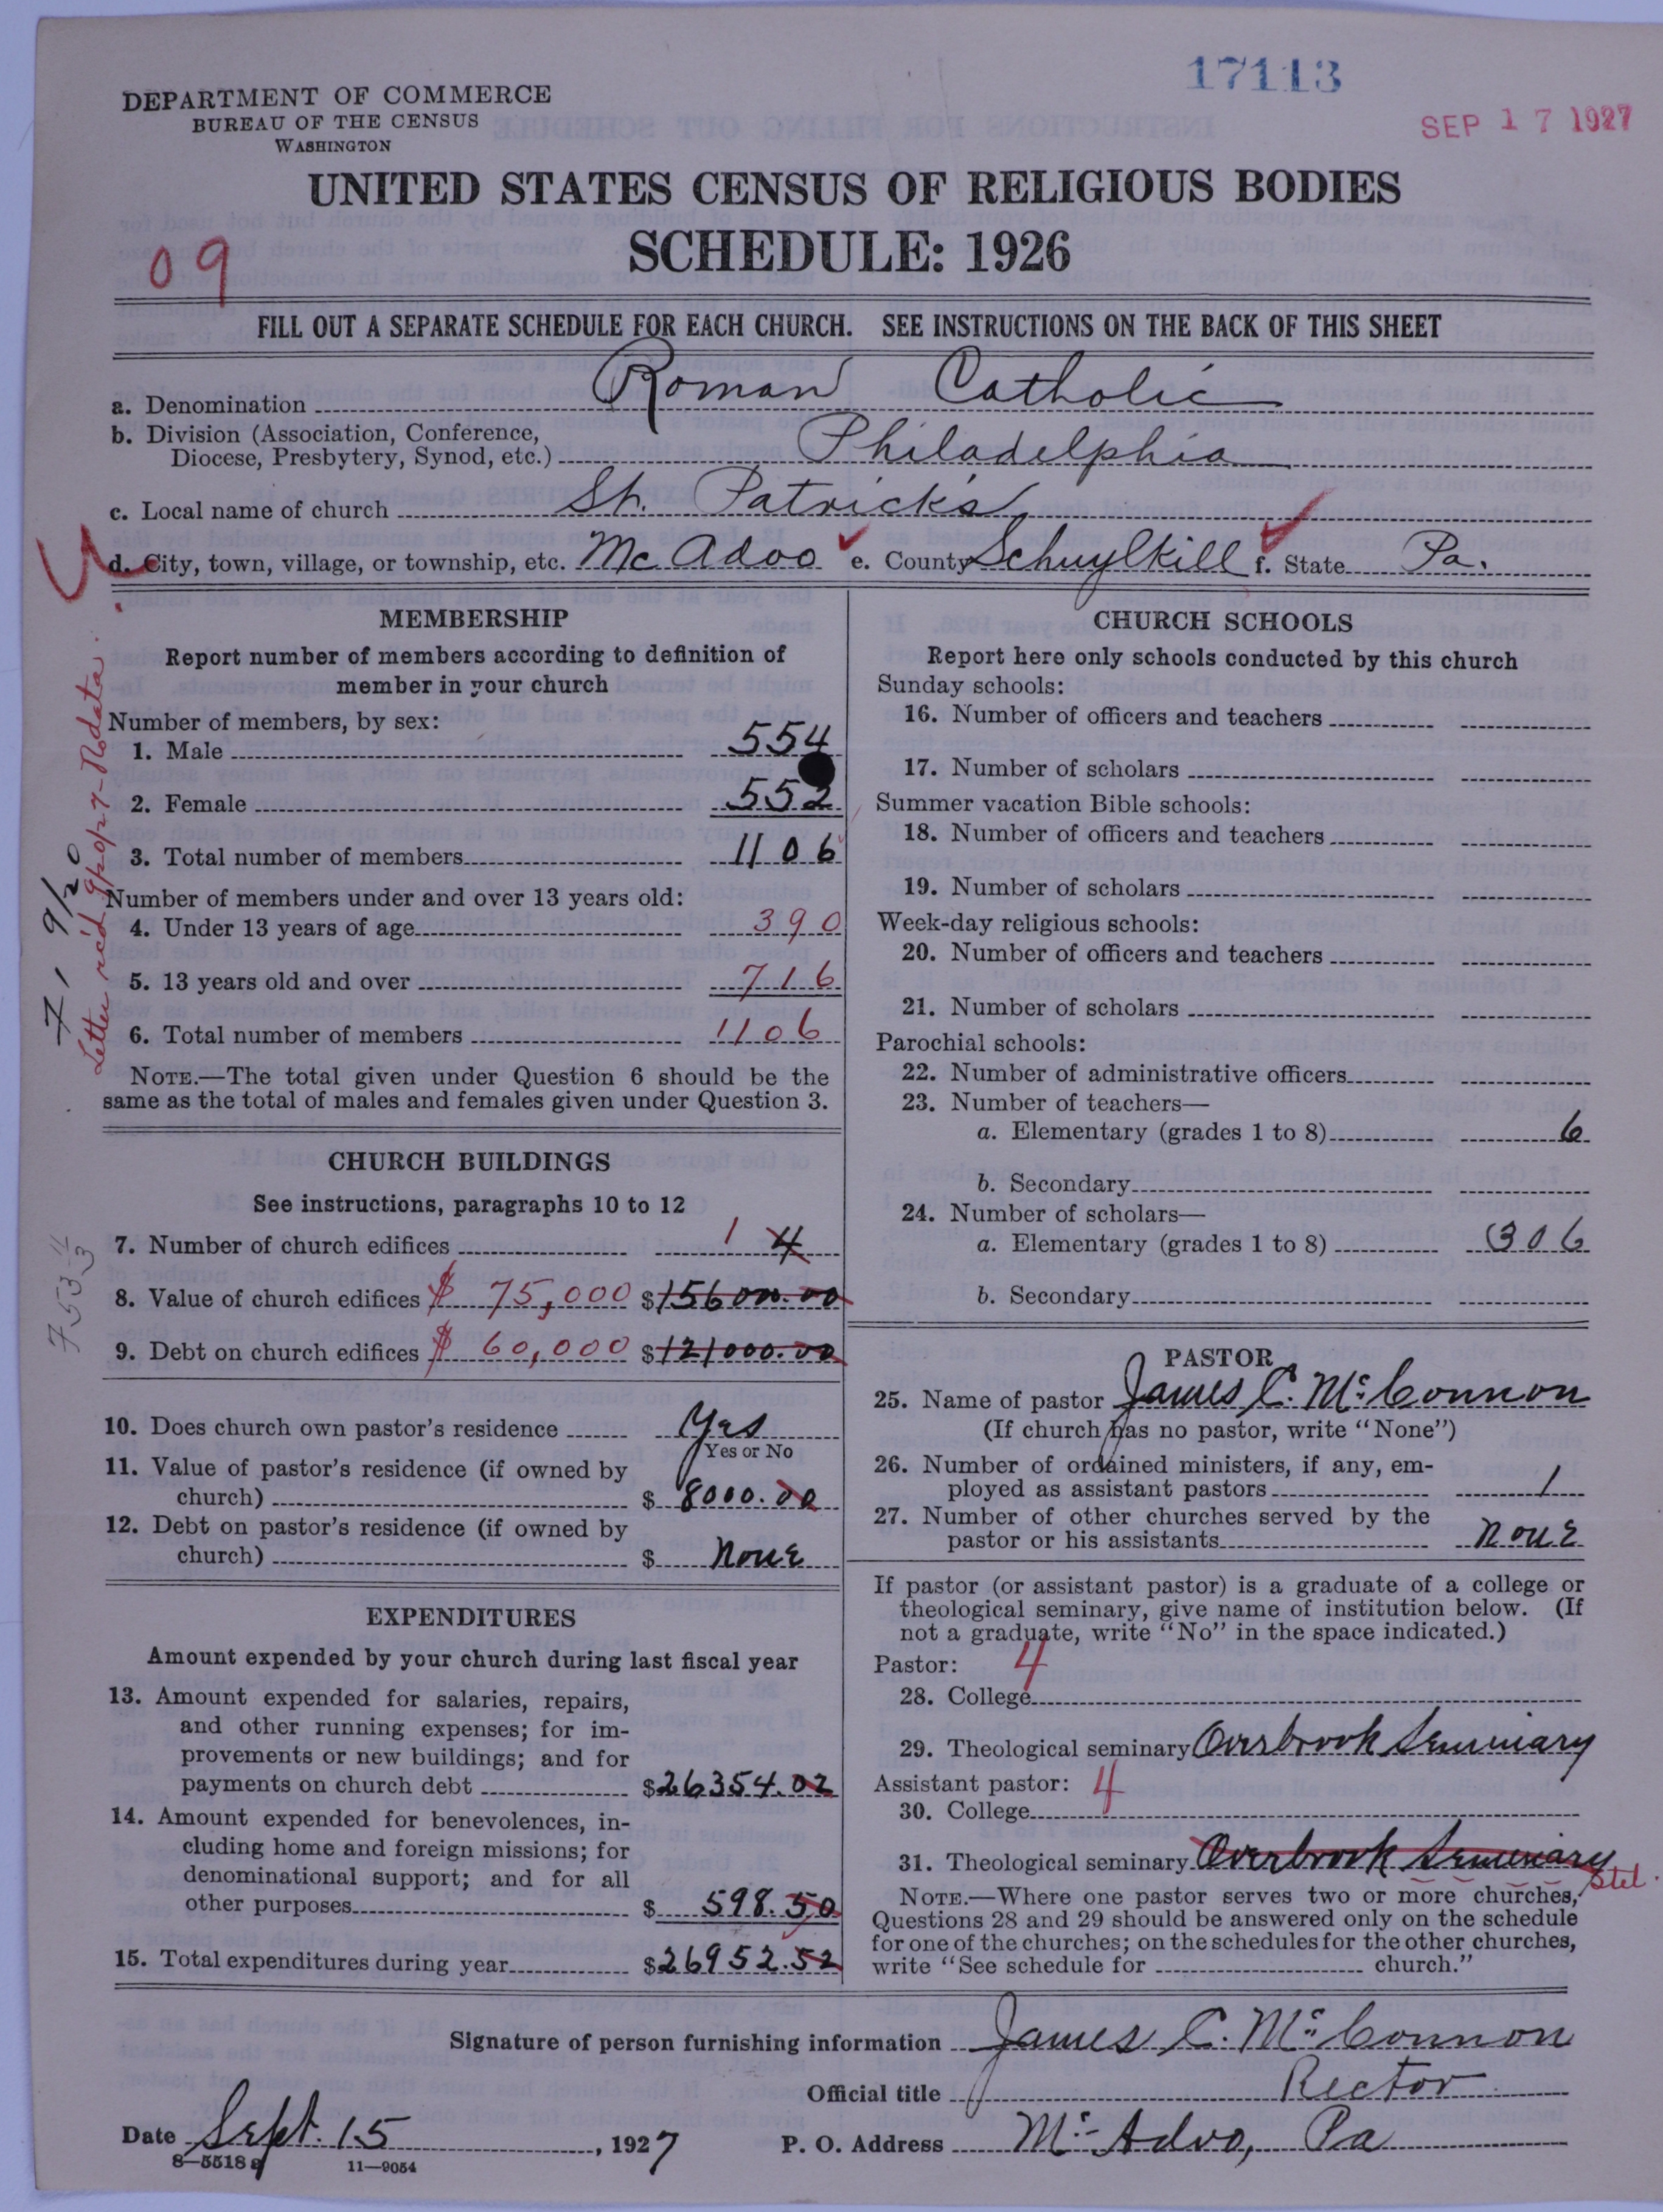 17113
DEPARTMENT OF COMMERCE
BUREAU OF THE CENSUS
WASHINGTON
SEP 17 1927
UNITED STATES CENSUS OF RELIGIOUS BODIES
SCHEDULE: 1926
09
FILL OUT A SEPARATE SCHEDULE FOR EACH CHURCH. SEE INSTRUCTIONS ON THE BACK OF THIS SHEET
a. Denomination Roman Catholic
b. Division (Association, Conference,
Diocese, Presbytery, Synod, etc.) Philadelphia
c. Local name of church St. Patrick's
d. City, town, village, or township, etc. Mc Adoo e. County Schuylkill f. State Pa.
MEMBERSHIP
Report number of members according to definition of
member in your church
Number of members, by sex:
1. Male 554
2. Female 552
3. Total number of members 1106
Number of members under and over 13 years old:
4. Under 13 years of age 390
5. 13 years old and over 716
6. Total number of members 1106
NOTE.—The total given under Question 6 should be the
same as the total of males and females given under Question 3.
CHURCH BUILDINGS
See instructions, paragraphs 10 to 12
7. Number of church edifices 1 4
8. Value of church edifices $ 75,000 $156000.00
9. Debt on church edifices $ 60,000 $121000.00
10. Does church own pastor's residence Yes
Yes or No
11. Value of pastor's residence (if owned by
church) $ 8000.00
12. Debt on pastor's residence (if owned by
church) $ None
EXPENDITURES
Amount expended by your church during last fiscal year
13. Amount expended for salaries, repairs,
and other running expenses; for im-
provements or new buildings; and for
payments on church debt $26354.02
14. Amount expended for benevolences, in-
cluding home and foreign missions; for
denominational support; and for all
other purposes $ 598.50
15. Total expenditures during year $26952.52
CHURCH SCHOOLS
Report here only schools conducted by this church
Sunday schools:
16. Number of officers and teachers
17. Number of scholars
Summer vacation Bible schools:
18. Number of officers and teachers
19. Number of scholars
Week-day religious schools:
20. Number of officers and teachers
21. Number of scholars
Parochial schools:
22. Number of administrative officers
23. Number of teachers—
a. Elementary (grades 1 to 8) 6
b. Secondary
24. Number of scholars—
a. Elementary (grades 1 to 8) 306
b. Secondary
PASTOR
25. Name of pastor James C. McConnon
(If church has no pastor, write "None")
26. Number of ordained ministers, if any, em-
ployed as assistant pastors 1
27. Number of other churches served by the
pastor or his assistants None
If pastor (or assistant pastor) is a graduate of a college or
theological seminary, give name of institution below. (If
not a graduate, write "No" in the space indicated.)
Pastor: 4
28. College
29. Theological seminary Overbrook Seminary
Assistant pastor: 4
30. College
31. Theological seminary Overbrook Seminary Stet.
NOTE.—Where one pastor serves two or more churches,
Questions 28 and 29 should be answered only on the schedule
for one of the churches; on the schedules for the other churches,
write "See schedule for church."
Signature of person furnishing information James C. McConnon
Official title Rector
Date Sept. 15, 1927 P. O. Address Mc Adoo, Pa
8—5518 a 11—9054
Letter rec'd 9/20/27
9/20